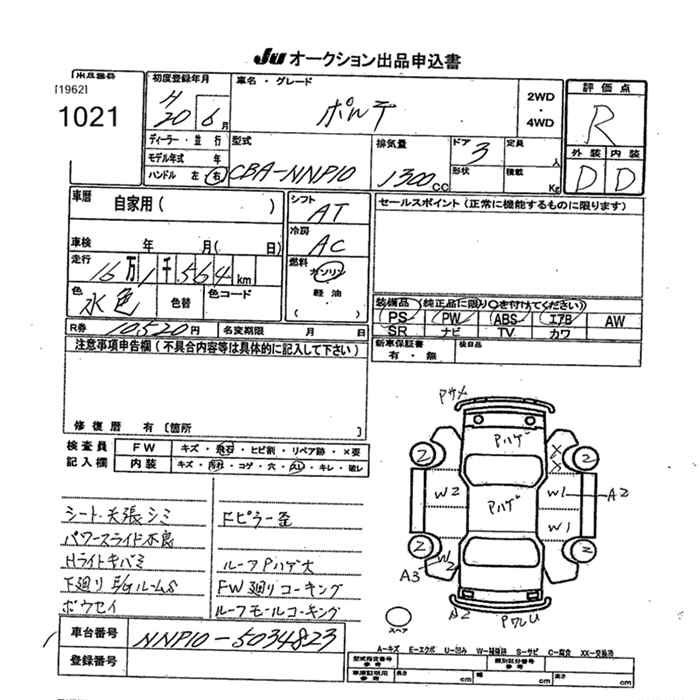 JU オークション出品申込書
出品番号
[1962]
1021
初度登録年月
H 20 6 月
車名・グレード
ポルテ
2WD
・
4WD
評価点
R
外装 内装
D D
ディーラー・並行
モデル年式 年
ハンドル 左 右
型式
CBA-NNP10
排気量
1300 CC
ドア 3
形状
定員 人
積載 Kg
車歴
自家用( )
シフト
AT
車検 年 月( 日)
冷房
AC
走行
16万1千564km
燃料
ガソリン
・
軽油
( )
色
水色
色替
色コード
R券 10,520円
名変期限 月 日
セールスポイント(正常に機能するものに限ります)
装備品 (純正品に限り○を付けてください)
PS PW ABS エアB AW
SR ナビ TV カワ
新車保証書
有・無
検自品
注意事項申告欄(不具合内容等は具体的に記入して下さい)
修復歴 有〔箇所
検査員
記入欄
FW キズ・飛石・ヒビ割・リペア跡・×要
内装 キズ・汚れ・コゲ・穴・スレ・キレ・破レ
シート・天張シミ
パワースライド不良
Hライトキバミ
下廻りE/GルームS
ボウセイ
Fピラー歪
ルーフPハゲ大
FW廻りコーキング
ルーフモールコーキング
車台番号 NNP10-5034823
登録番号
Pサメ
Pハゲ
2 2
X
X
W2 Pハゲ W1 A2
W1
2 2
W2
A3
A2
PワレU
スペア
A-キズ E-エクボ U-凹み W-補修跡 S-サビ C-腐食 XX-交換済
型式指定番号
参考
類別区分番号
参考
車庫証明用
参考
長さ cm 幅 cm 高さ cm